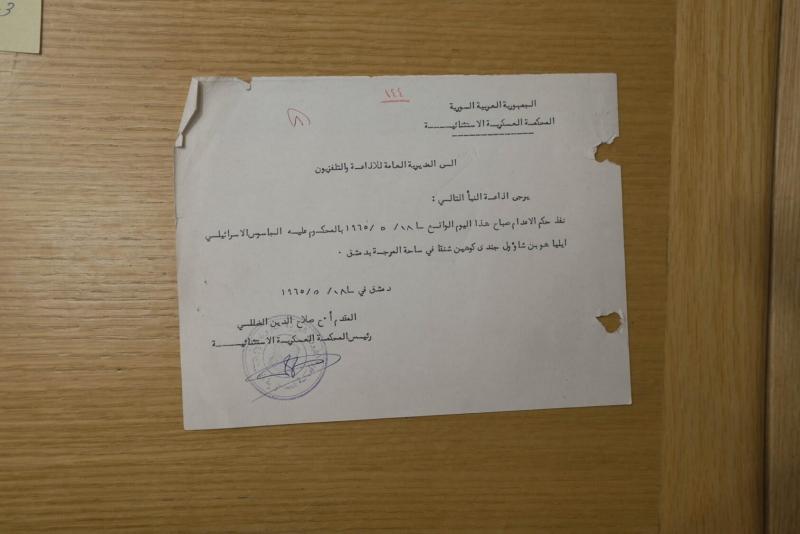 3
١٤٤
الجمهورية العربية السورية
المحكمة العسكرية الاستثنائيـــــة
الى المديرية العامة للاذاعة والتلفزيون
يرجى اذاعة النبأ التالي :
نفذ حكم الاعدام صباح هذا اليوم الواقع في ١٨/ ٥/ ١٩٦٥ بالمحكوم عليه الجاسوس الاسرائيلي
ايليا هو بن شاؤول جندي كوهين شنقا في ساحة المرجة بدمشق ٠
دمشق في ١٨/ ٥/ ١٩٦٥
المقدم أ٠ح صلاح الدين الضللي
رئيس المحكمة العسكرية الاستثنائيـــــة